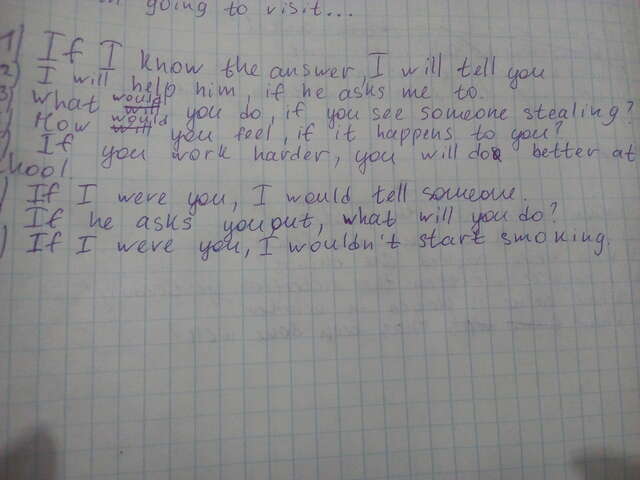 going to visit...
1) If I know the answer, I will tell you
2) I will help him, if he asks me to.
3) What would you do, if you see someone stealing?
) How would you feel, if it happens to you?
) If you work harder, you will do better at
hool.
) If I were you, I would tell someone.
If he asks you out, what will you do?
) If I were you, I wouldn't start smoking.